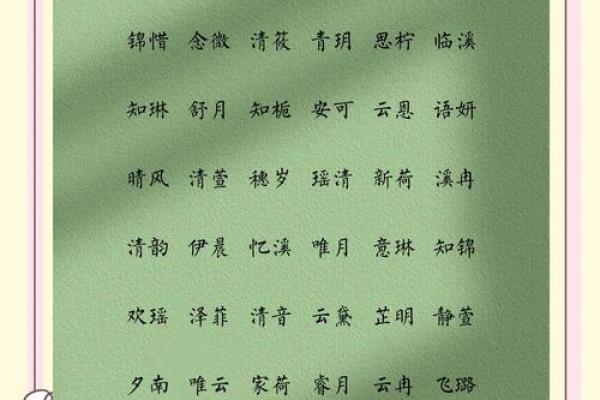 锦惜 念微 清筱 青玥 思柠 临溪
知琳 舒月 知栀 安可 云恩 语妍
晴风 清萱 穗岁 瑶清 新荷 溪冉
清韵 伊晨 忆溪 唯月 意琳 知锦
欢瑶 泽菲 清音 云黛 芷明 静萱
夕南 唯云 家荷 睿月 云冉 飞璐